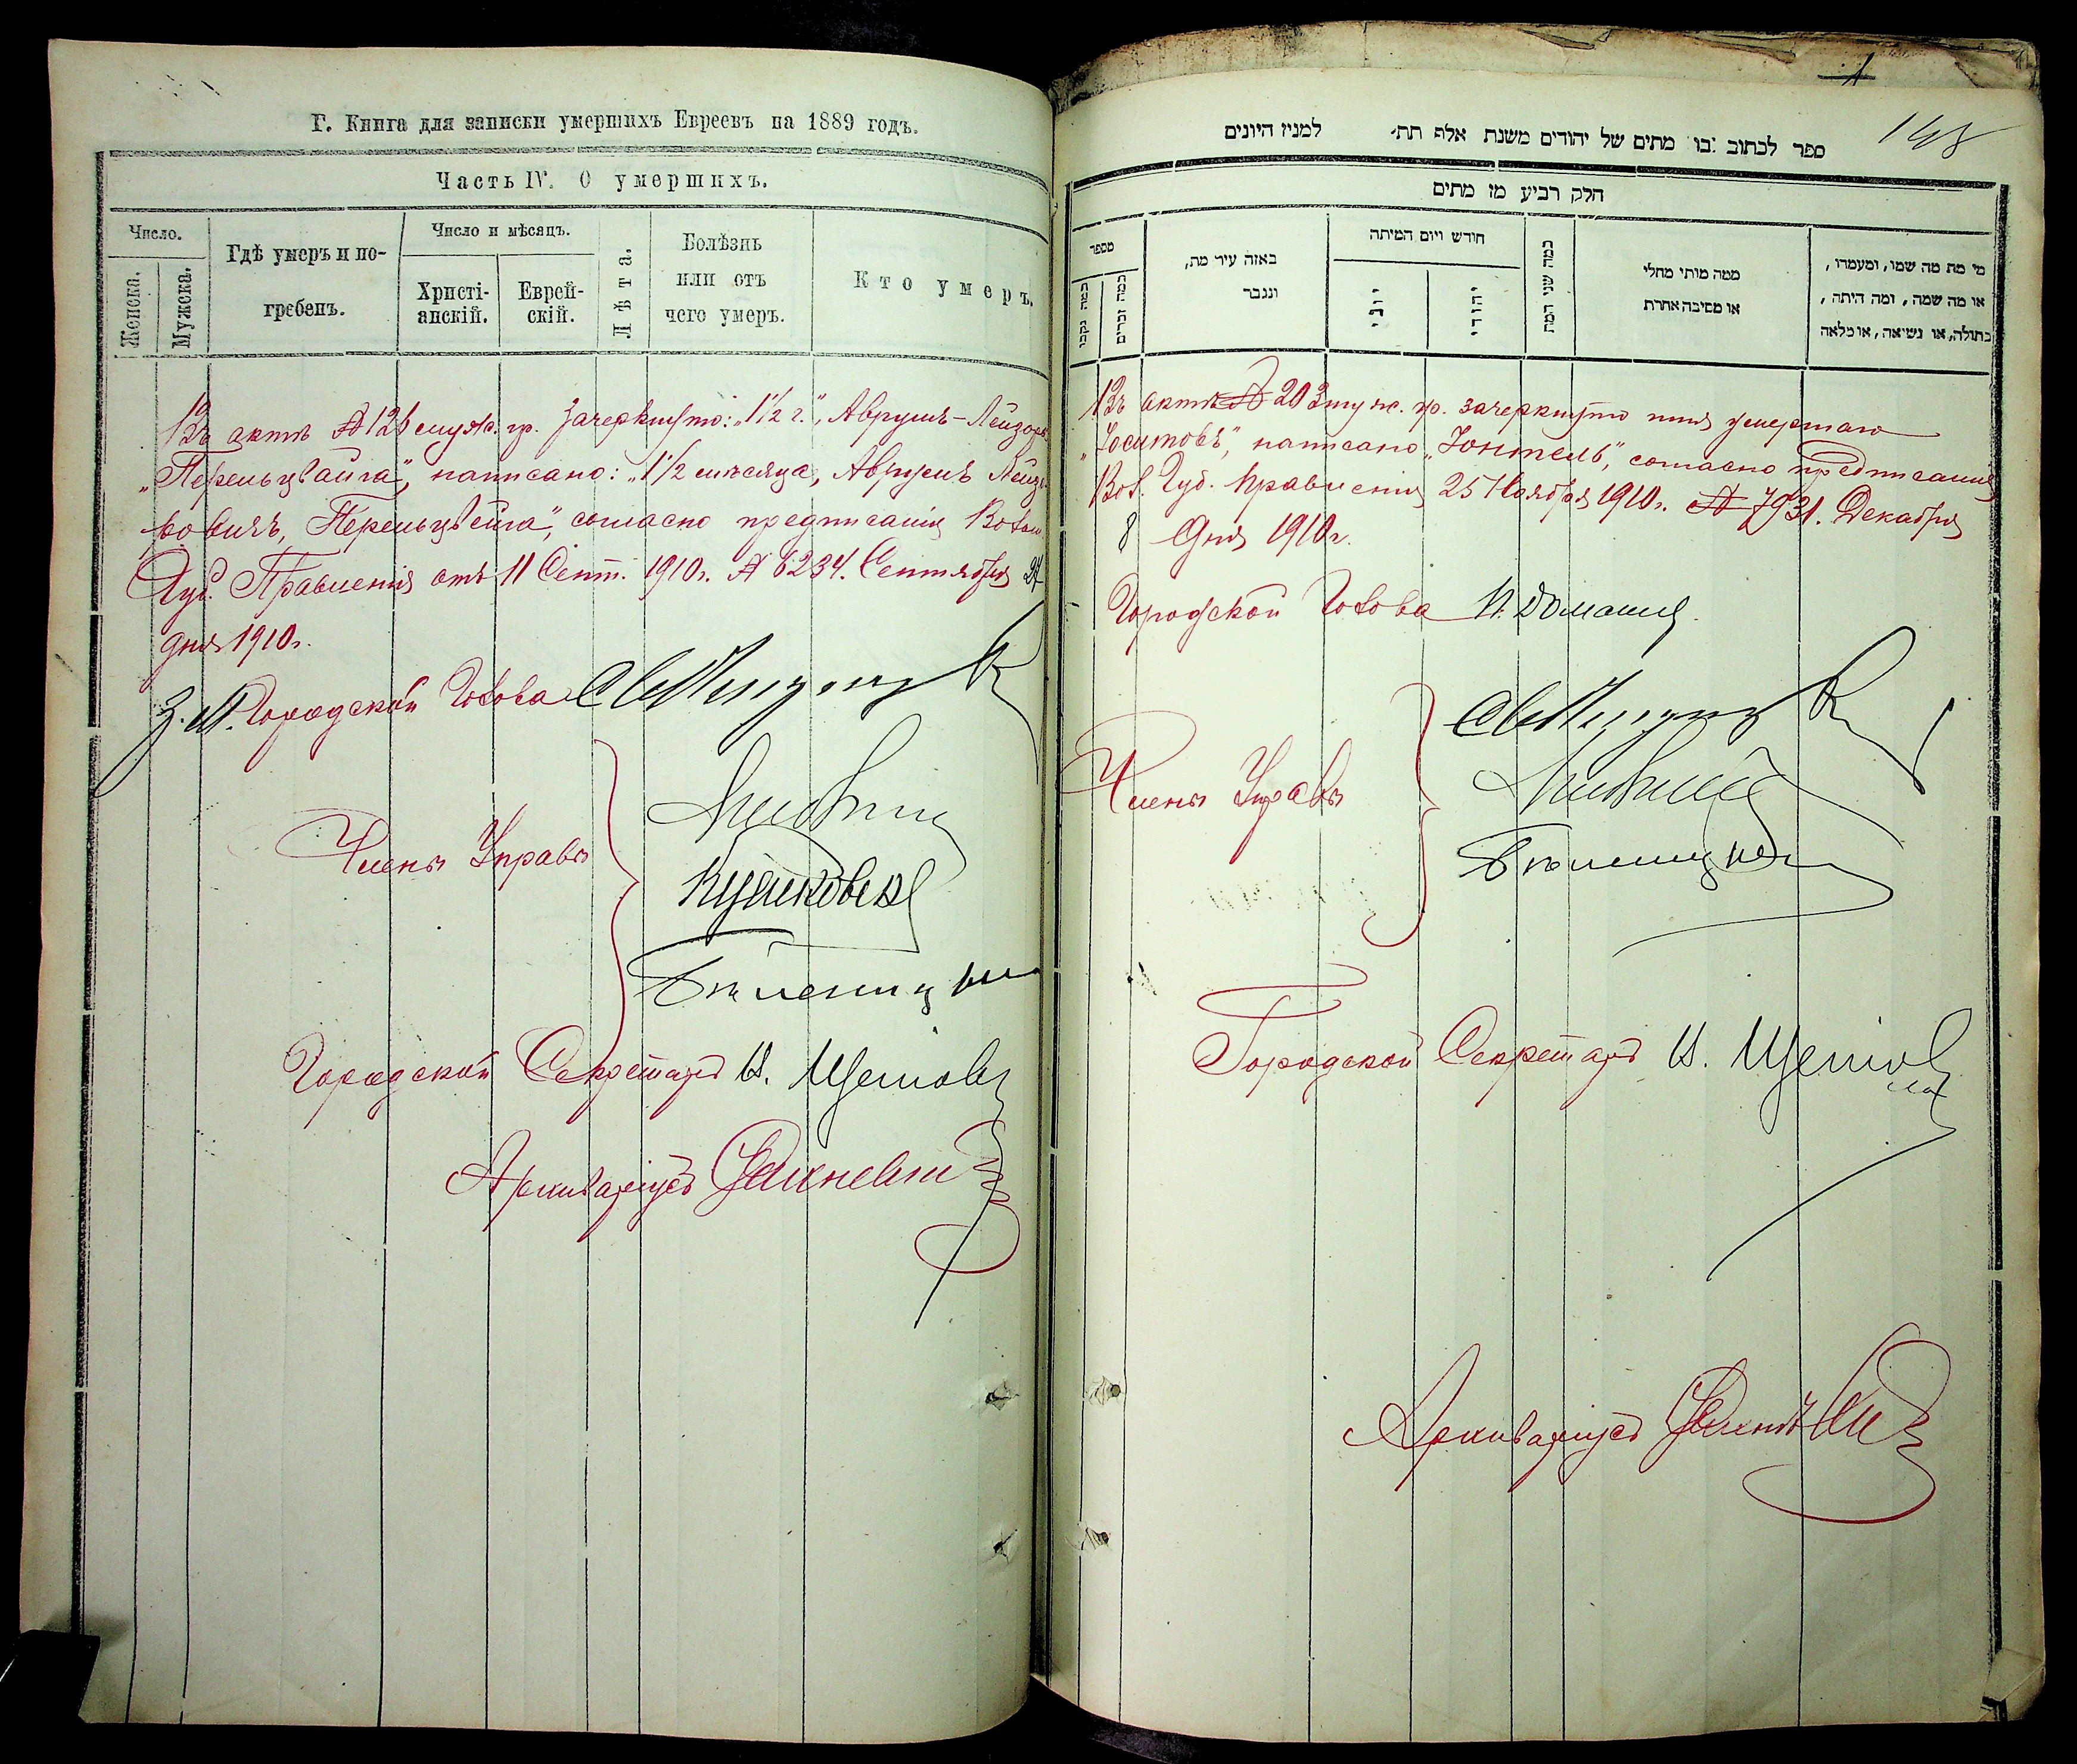 Г. Книга для записки умершихъ Евреевъ на 1889 годъ.
Часть IV. О умершихъ.
Число.
Женска.
Мужска.
Гдѣ умеръ и по-
гребенъ.
Число и мѣсяцъ.
Христі-
анскій.
Еврей-
скій.
Лѣта.
Болѣзнь
или отъ
чего умеръ.
Кто умеръ.
Въ актѣ № 126 муж. гр. зачеркнуто: "1½ г.", Аврумъ-Лейзоръ
"Перельцвайга", написано: "1½ мѣсяца, Аврумъ Лейзо-
ровичъ, Перельцвейга", согласно предписанія Волын.
Губ. Правленія отъ 11 Сент. 1910 г. № 6234. Сентября 24
дня 1910 г.
З. М. Городской Голова
Члены Управы
Городской Секретарь И.
Архиваріусъ
148
ספר לכתוב בו מתים של יהודים משנת אלף תת׳ למניז היונים
חלק רביע מז מתים
מספר
כמה נקבו
כמה זכרים
באזה עיר מת,
ונגבר
חודש ויום המיתה
יוני
יהודי
כמה שני המת
ממה מותי מחלי
או מסיבה אחרת
מי מת מה שמו, ומעמדו,
או מה שמה, ומה היתה,
בתולה, או נשיאה, או מלאה
Въ актѣ № 203 муж. гр. зачеркнуто имя умершаго
"Іосиповъ", написано "Юнтель", согласно предписанія
Вол. Губ. Правленія 25 Ноября 1910 г. № 7931. Декабря
8 дня 1910 г.
Городской Голова
Члены Управы
Городской Секретарь И.
Архиваріусъ